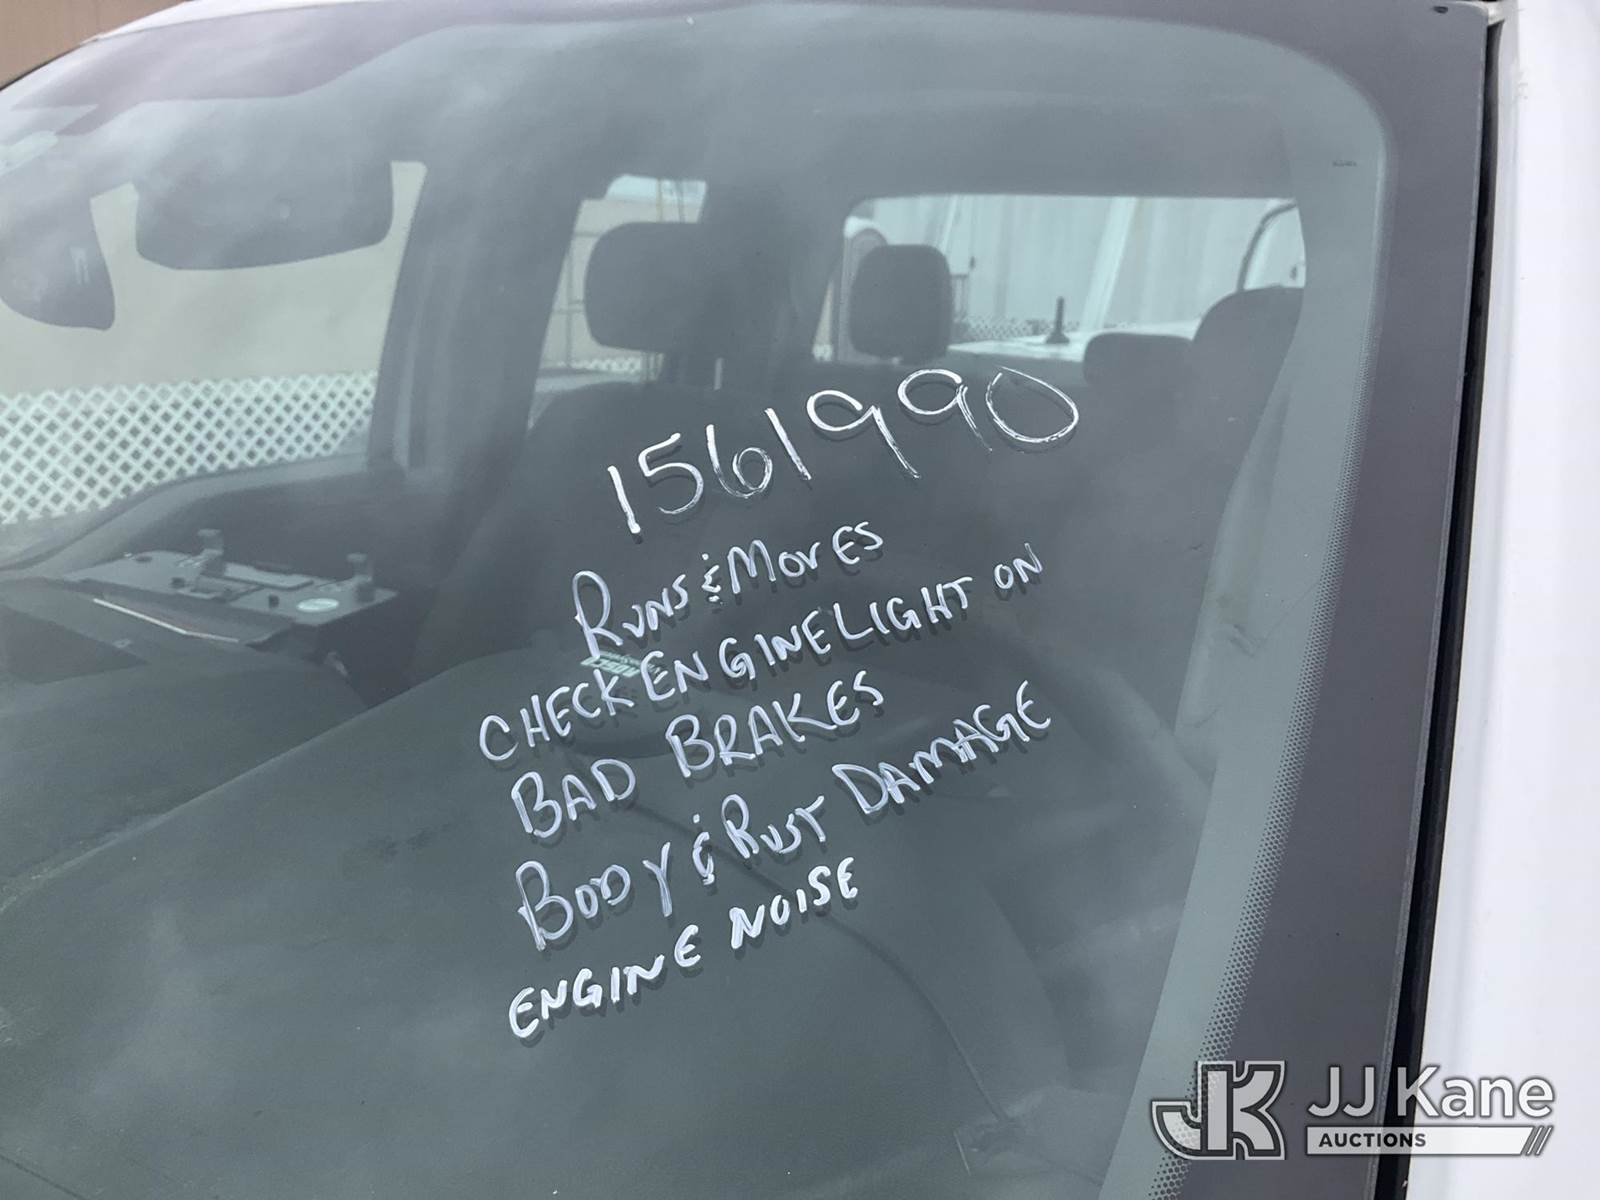 1561990
RUNS & MOVES
CHECK ENGINE LIGHT ON
BAD BRAKES
BODY & RUST DAMAGE
ENGINE NOISE
JK JJ Kane
AUCTIONS